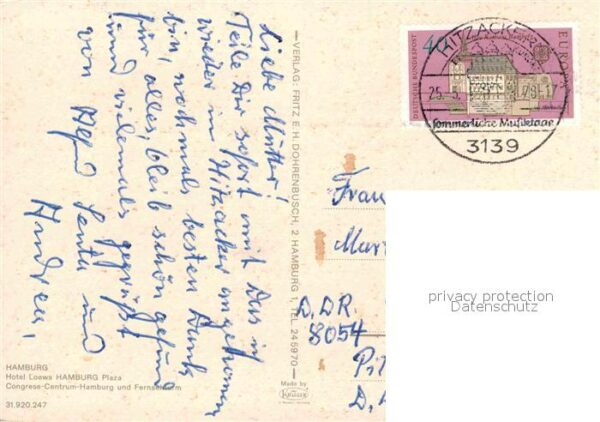 Liebe Mutter!
Teile Dir sofort mit Das ich
wieder in Hitzacker angekommen
bin, nochmals besten Dank
für alles, bleib schön gesund
und vielemals gegrüßt
von
und
Andrea,
VERLAG: FRITZ E. H. DOHRENBUSCH, 2 HAMBURG 1, TEL. 245970
Made by
Krüger
HAMBURG
Hotel Loews HAMBURG Plaza
Congress-Centrum-Hamburg und Fernsehturm
31.920.247
DEUTSCHE BUNDESPOST
40
EUROPA
HITZACKER
25.-5.
Sommerliche Musiktage
3139
Frau
D.DR.
8054
privacy protection
Datenschutz